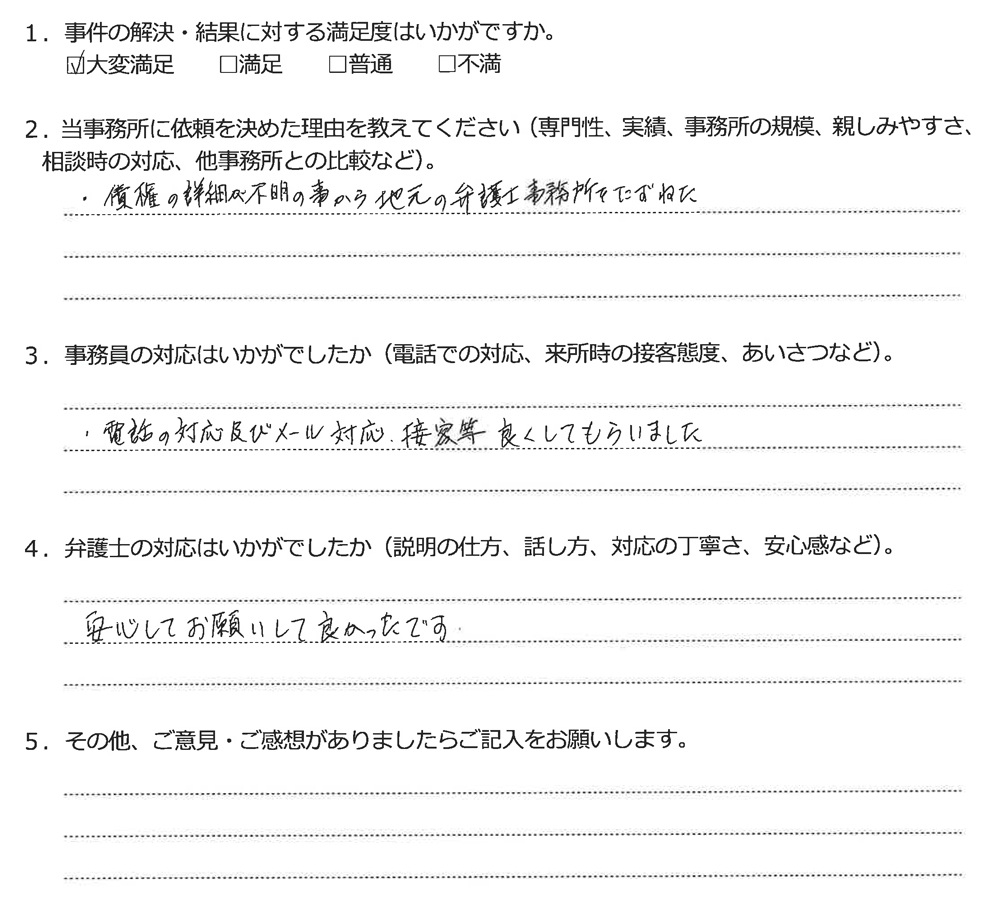 1．事件の解決・結果に対する満足度はいかがですか。
☑大変満足　□満足　□普通　□不満
2．当事務所に依頼を決めた理由を教えてください（専門性、実績、事務所の規模、親しみやすさ、
相談時の対応、他事務所との比較など）。
・債権の詳細が不明の事から地元の弁護士事務所をたずねた
3．事務員の対応はいかがでしたか（電話での対応、来所時の接客態度、あいさつなど）。
・電話の対応及びメール対応、接客等 良くしてもらいました
4．弁護士の対応はいかがでしたか（説明の仕方、話し方、対応の丁寧さ、安心感など）。
安心してお願いして良かったです.
5．その他、ご意見・ご感想がありましたらご記入をお願いします。